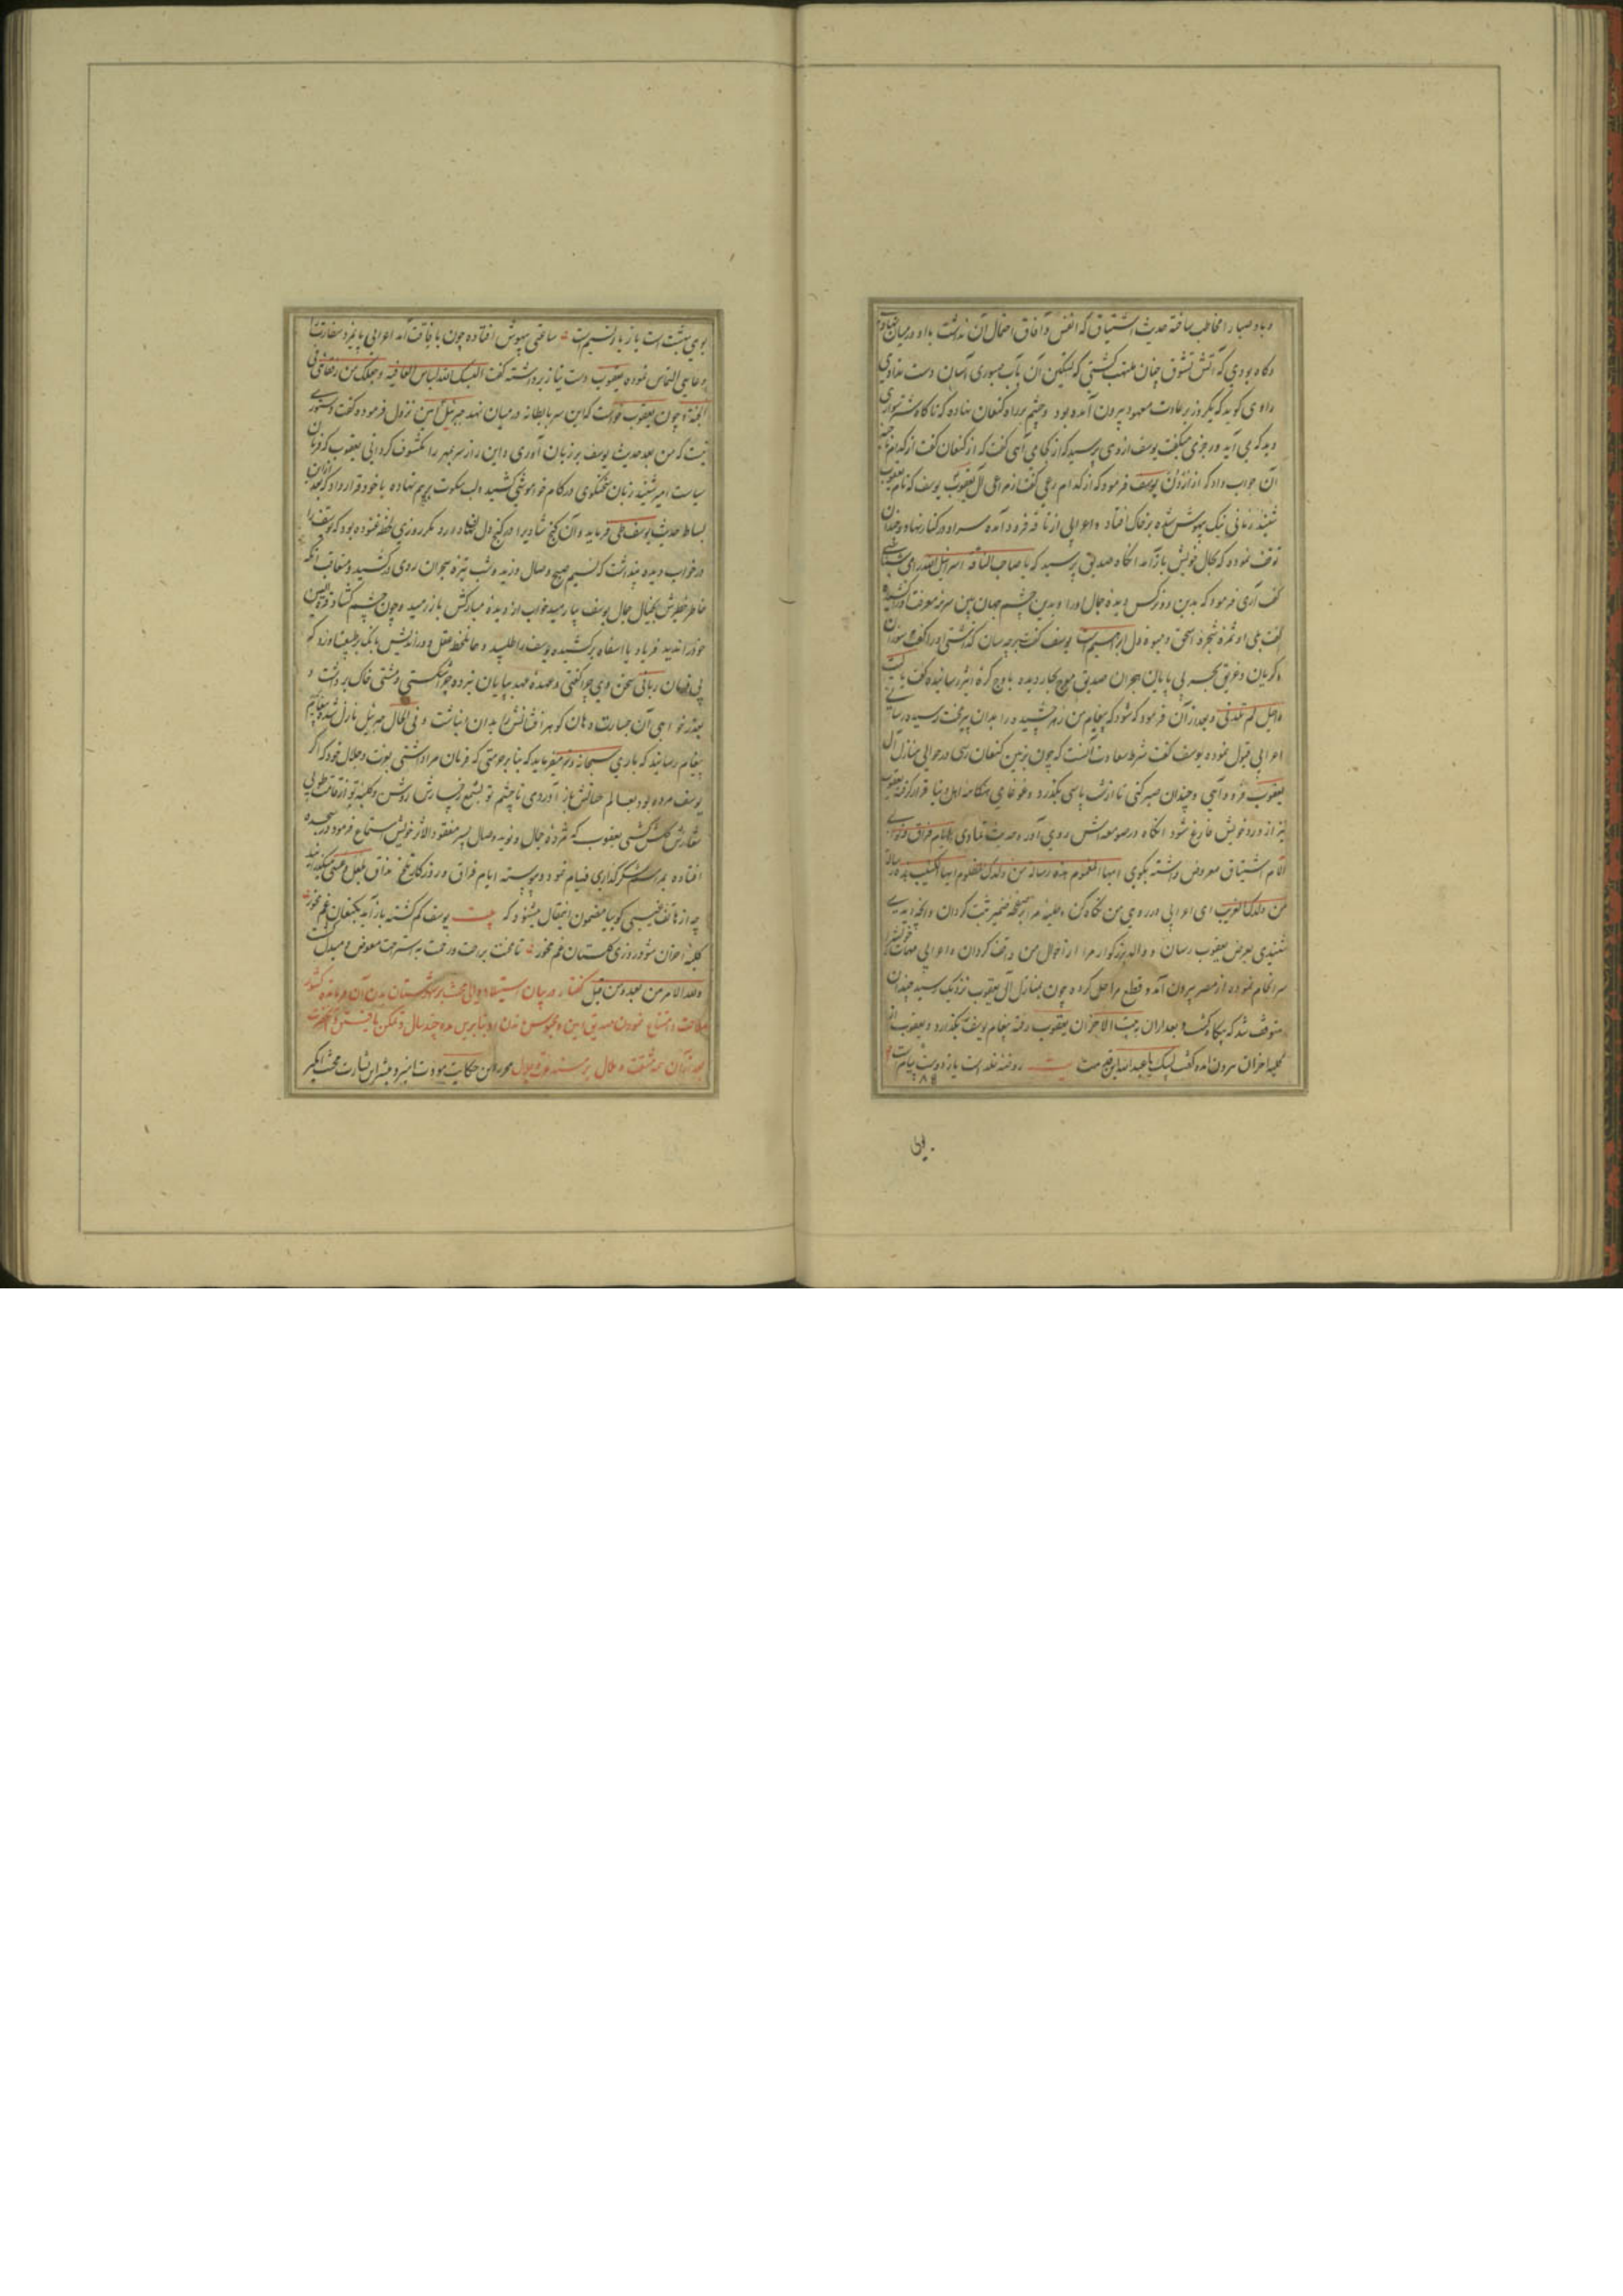 و باد صبا را مخاطب ساخته حدیث اشتیاق که انفس و آفاق احتمال آن نداشت با او در میان نهادی
و گاه بودی که آتش تشوق چنان ملتهب گشتی که تسکین آن بآب صبوری آسان دست ندادی
راوی گوید که یکروز بر عادت معهود بیرون آمده بود و چشم بر راه کنعان نهاده که ناگاه شتر سواری
دید که می آید و رجزی میگفت یوسف از وی پرسید که از کجا می آیی گفت که از کنعان گفت از کدام
آن جواب داد که از یوسف فرمود که از کدام گفت از مراعی آل یعقوب یوسف که نام یعقوب
شنید زمانی نیک بیهوش شده بر خاک افتاد و اعرابی از ناقه فرود آمده سر او در کنار نهاد و چندان
توقف نموده که بحال خویش باز آمد آنگاه صدیق پرسید که یا صاحب الناقه اسرائیل الله را می شناسی
گفت آری فرمود که بدین دو نرگس دیده جمال او را و بدین چشم جهان بین
گفت بلی او ثمره شجره اسحق و میوه دل ابراهیم است یوسف گفت بر چه سان گذاشتی او را گفت سوزان
و گریان و غریق بحر بی پایان هجران صدیق موج بحار دیده باوج کره اثیر رسانیده گفت یا لیت
راحیل لم تلدنی و بعد از آن فرمود که شود که پیغام من زهر چشیده را بدان پیر محنت رسیده رسانی
اعرابی قبول نموده یوسف گفت شرط سعادت آنست که چون بزمین کنعان رسی در حوالی منازل آل
یعقوب فرود آیی و چندان صبر کنی تا از شب پاسی بگذرد و غوغای هنگامه اهل دنیا قرار گرفته یعقوب
نیز از ورد خویش فارغ شود آنگاه در صومعه اش روی آور و حدیث تمادی ایام فراق
آلام اشتیاق معروض داشته بگوی ایها المغموم هذه رسالة من ولدک المظلوم ایها الکئیب هذه رسالة
من ولدک الغریب ای اعرابی در روی من نگاه کن و حلیه مرا بر صحیفه ضمیر ثبت گردان و آنچه دیدی
شنیدی بعرض یعقوب رسان و والد بزرگوار مرا از احوال من واقف گردان و اعرابی مهمات خویش را
سرانجام نموده از مصر بیرون آمد و قطع مراحل کرده چون بمنازل آل یعقوب نزدیک رسید چندان
متوقف شد که بیگاه گشت و بعد از آن به بیت الاحزان یعقوب رفته پیغام یوسف بگذارد و یعقوب از
کلبه احزان بیرون آمده گفت لبیک یا عبدالله بیت روضه خلد است یا ز دوست پیام است
بوی
بوی بهشت است یا ز یار نسیم است ساعتی بیهوش افتاده چون بافاقت آمد اعرابی پایمزد سفارت
دعایی التماس نموده یعقوب دست نیاز برداشته گفت البسک الله لباس العافیه و جعلک من رفقائی فی
الجنة و چون یعقوب خواست که این سر با بطانه در میان نهد جبرئیل امین نزول فرموده گفت دستوری
نیست که من بعد حدیث یوسف بر زبان آوری و این راز سر بمهر را مکشوف گردانی یعقوب که فرمان
سیاست امیر شنید زبان گفتگوی در کام خواموشی کشید و لب سکوت بر هم نهاده با خود قرار داد که بعد از آن
بساط حدیث یوسف طی فرماید و آن گنج شادی را در کنج دل نهد مگر روزی لحظه غنوده بود که یوسف را
در خواب دیده پنداشت که نسیم صبح وصال وزید و شب تیره هجران روی در کشید و متعاقب آنکه
خاطر خطیرش بخیال جمال یوسف بیارمید خواب از دیده مبارکش باز رمید و چون چشم گشاد قرة العین
خود را ندید فریاد یا اسفاه برکشیده یوسف را طلبید و حافظ عقل دوراندیش بانگ بر طبع او زد که
بی فرمان ربانی سخن وی چرا گفتی و عهده عهد بپایان نبرده چرا شکستی و مشتی خاک برداشت و
بعذرخواهی آن جسارت دهان گوهرافشانش را بدان بینباشت و فی الحال جبرئیل نازل شده پیغام
پیغام رسانید که باری سبحانه و تعالی میفرماید که بنابر حرمتی که فرمان مرا داشتی بعزت و جلال خود که اگر
یوسف مرده بود بعالم حیاتش باز آوردمی تا چشم تو بشمع رخسارش روشن و کلبه تو از قامت طوبی
مثالش گلشن گشتی یعقوب که مژده جمال و نوید وصال پسر مفقود الاثر خویش استماع فرمود در سجده
افتاده بمراسم شکرگذاری قیام نمود و پیوسته ایام فراق و روزگار تلخ مذاق بلعل و عسی میگذرانید
چه از هاتف غیبی گوییا مضمون این مقال میشنود که بیت یوسف گم گشته باز آید بکنعان غم مخور
کلبه احزان شود روزی گلستان غم مخور تا محنت براحت و زحمت به استراحت معوض و مبدل گشت
ولله الامر من بعد و من قبل گفتار در بیان استیفاد والی
ملاحت و امتناع نمودن صدیق امین و محبوس شدن او بنابرین مدت چند سال و تمکن یافتن آنحضرت
بعد از آن همه مشقت و ملال بر مسند عزت و اقبال محرر این حکایت مودت آمیز و مبشر این بشارت محبت انگیز